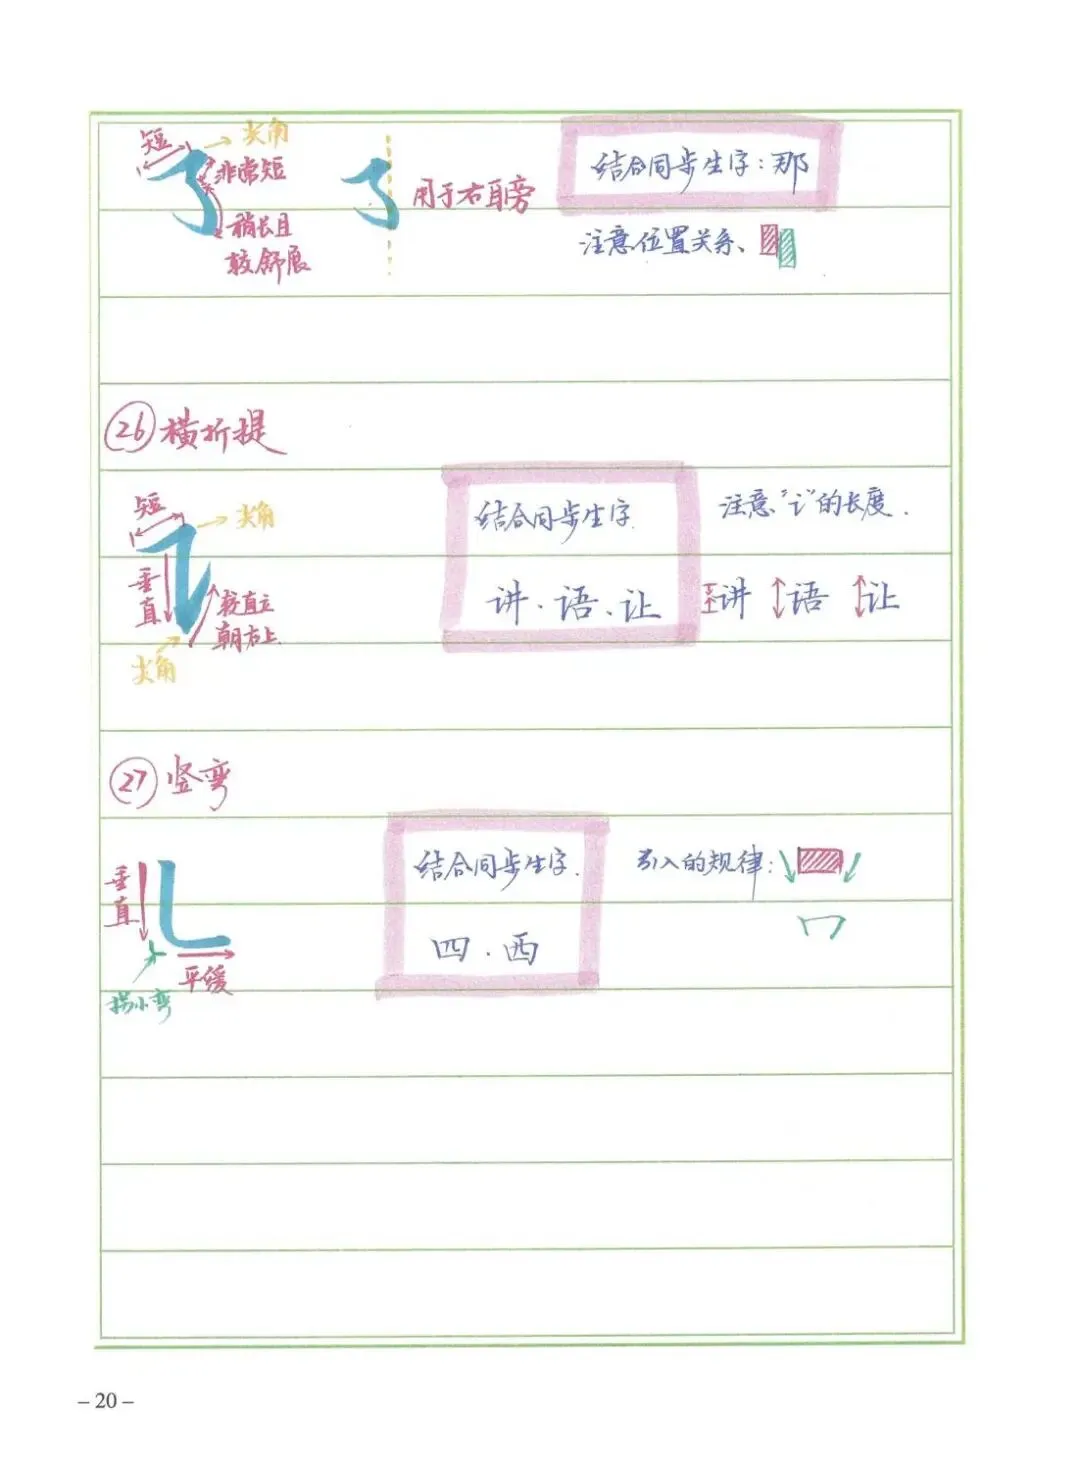 短 → 尖角
非常短
稍长且
较舒展
用于右耳旁
结合同步生字：那
注意位置关系、
26 横折提
短 → 尖角
垂直
较直立
朝右上
尖角
结合同步生字
讲·语·让
注意“讠”的长度.
讲 语 让
27 竖弯
垂直
平缓
拐小弯
结合同步生字.
四·西
引入的规律：
– 20 –